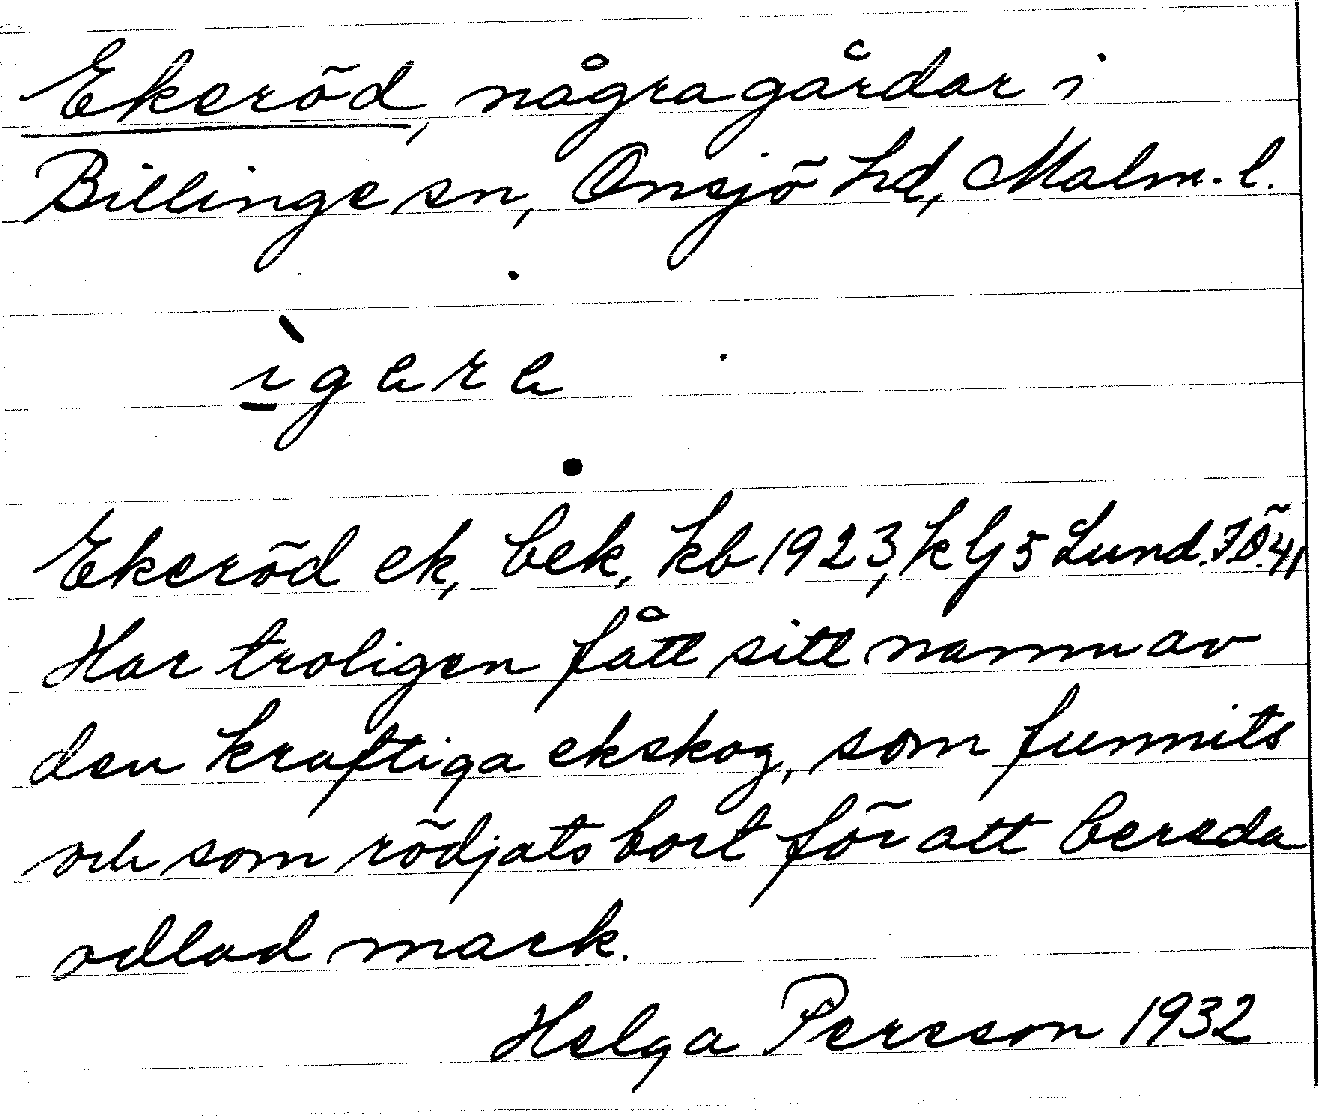 Ekeröd, några gårdar i
Billinge sn, Onsjö hd, Malm. l.
ìgara
Ekeröd ek, bek, kb 1923, k Gj 5 Lund. JÖ. 41
Har troligen fått sitt namn av
den kraftiga ekskog, som funnits
och som rödjats bort för att bereda
odlad mark.
Helga Persson 1932